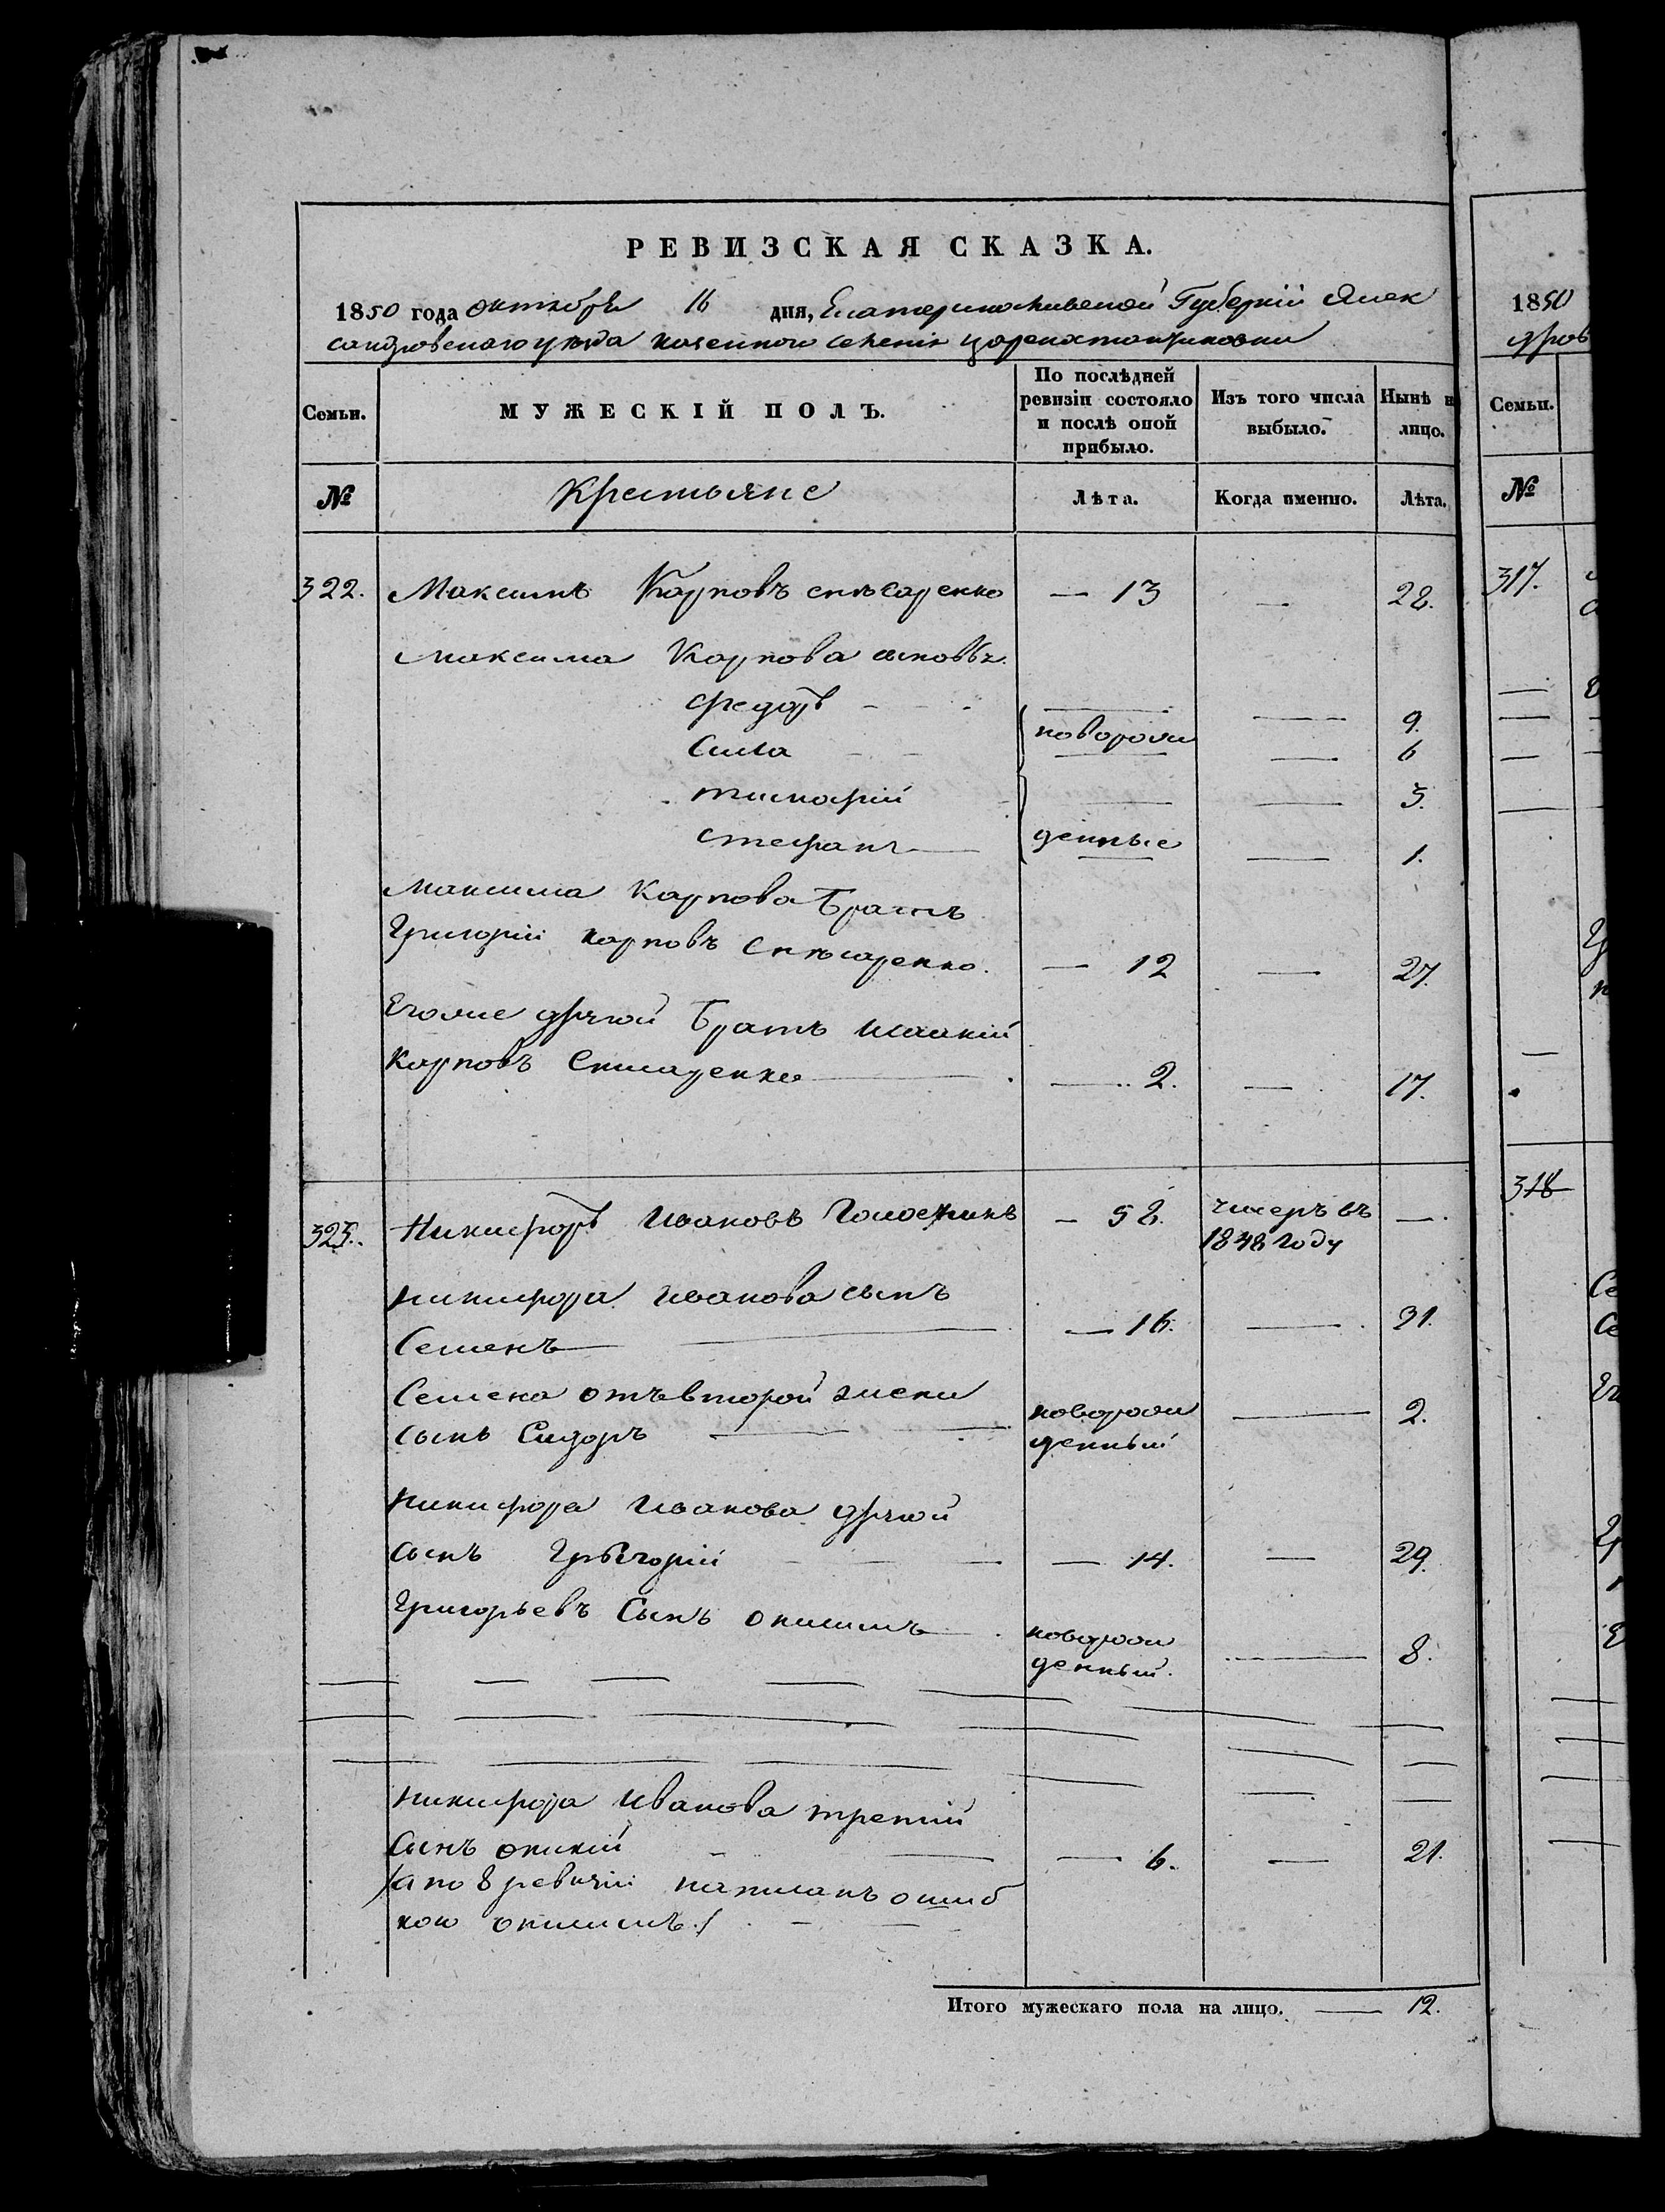 РЕВИЗСКАЯ СКАЗКА.
1850 года октября 16 дня, Екатеринославской Губерніи Алек
сандровскаго уѣзда казенного селенія
Семьи.
МУЖЕСКІЙ ПОЛЪ.
По послѣдней ревизіи состояло и послѣ оной прибыло.
Изъ того числа выбыло.
Нынѣ н лицо.
№
Крестьяне
Лѣта.
Когда именно.
Лѣта.
322. Максимъ Карповъ слѣсаренко — 13 — 28.
Максима Карпова сыновья
Федоръ — 9.
Сила новорож — 6
тимофій — 3.
Стефанъ денные — 1.
Максима Карпова Братъ
Григорій Карповъ Слѣсаренко. — 12 — 27.
Егоже другой Братъ
Карповъ Слисаренко — 2. — 17.
323. Никифоръ Ивановъ — 52. умеръ въ —
1848 году
Никифора Иванова сынъ
Семенъ — 16. — 31.
Семена отъ второй жены новорож — 2.
сынъ Сидоръ денный
Никифора Иванова другой
сынъ Григорій — 14. — 29.
Григорьевъ Сынъ онисимъ новорож — 8.
денный.
Никифора Иванова третій
Сынъ — 6. — 21.
/а по 8 ревизіи написанъ ошиб
кою онисимъ./
Итого мужескаго пола на лицо. — 12.
1850
Семьи.
№
317.
318